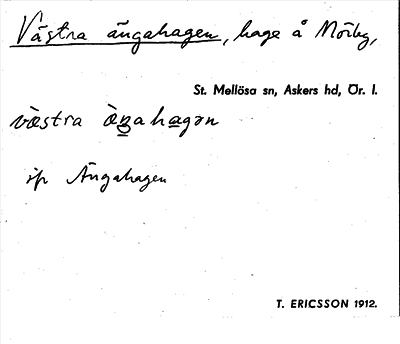 Västra ängahagen, hage å Mörby,
St. Mellösa sn, Askers hd, Ör. l.
västra ängahagən
ip Ängahagen
T. ERICSSON 1912.